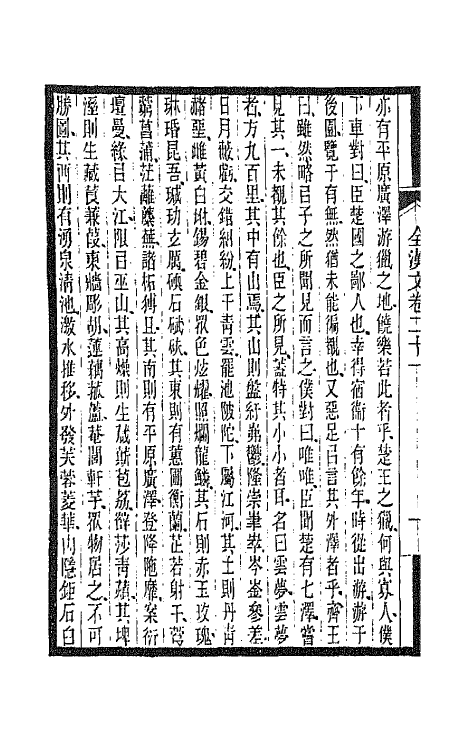 全漢文卷二十一
亦有平原廣澤游獵之地饒樂若此者乎、楚王之獵、何與寡人、僕
下車對曰、臣楚國之鄙人也、幸得宿衞十有餘年、時從出游、游于
後園、覽于有無、然猶未能徧覩也、又惡足㠯言其外澤者乎、齊王
曰、雖然、略㠯子之所聞見而言之、僕對曰、唯唯、臣聞楚有七澤、嘗
見其一、未覩其餘也、臣之所見、蓋特其小小者耳、名曰雲夢、雲夢
者、方九百里、其中有山焉、其山則盤紆岪鬱、隆崇嵂崒、岑崟參差、
日月蔽虧、交錯糾紛、上干青雲、罷池陂陀、下屬江河、其土則丹青
赭堊、雌黃白坿、錫碧金銀、眾色炫耀、照爛龍鱗、其石則赤玉玫瑰、
琳瑉昆吾、瑊玏玄厲、碝石碔砆、其東則有蕙圃衡蘭、芷若射干、芎
藭菖蒲、茳蘺蘪蕪、諸柘猼且、其南則有平原廣澤、登降陁靡、案衍
壇曼、緣㠯大江、限㠯巫山、其高燥則生葴菥苞荔、薛莎青薠、其埤
溼則生藏莨蒹葭、東牆彫胡、蓮藕菰蘆、菴䕡軒芋、眾物居之、不可
勝圖、其西則有湧泉清池、激水推移、外發芙蓉菱華、內隱鉅石白